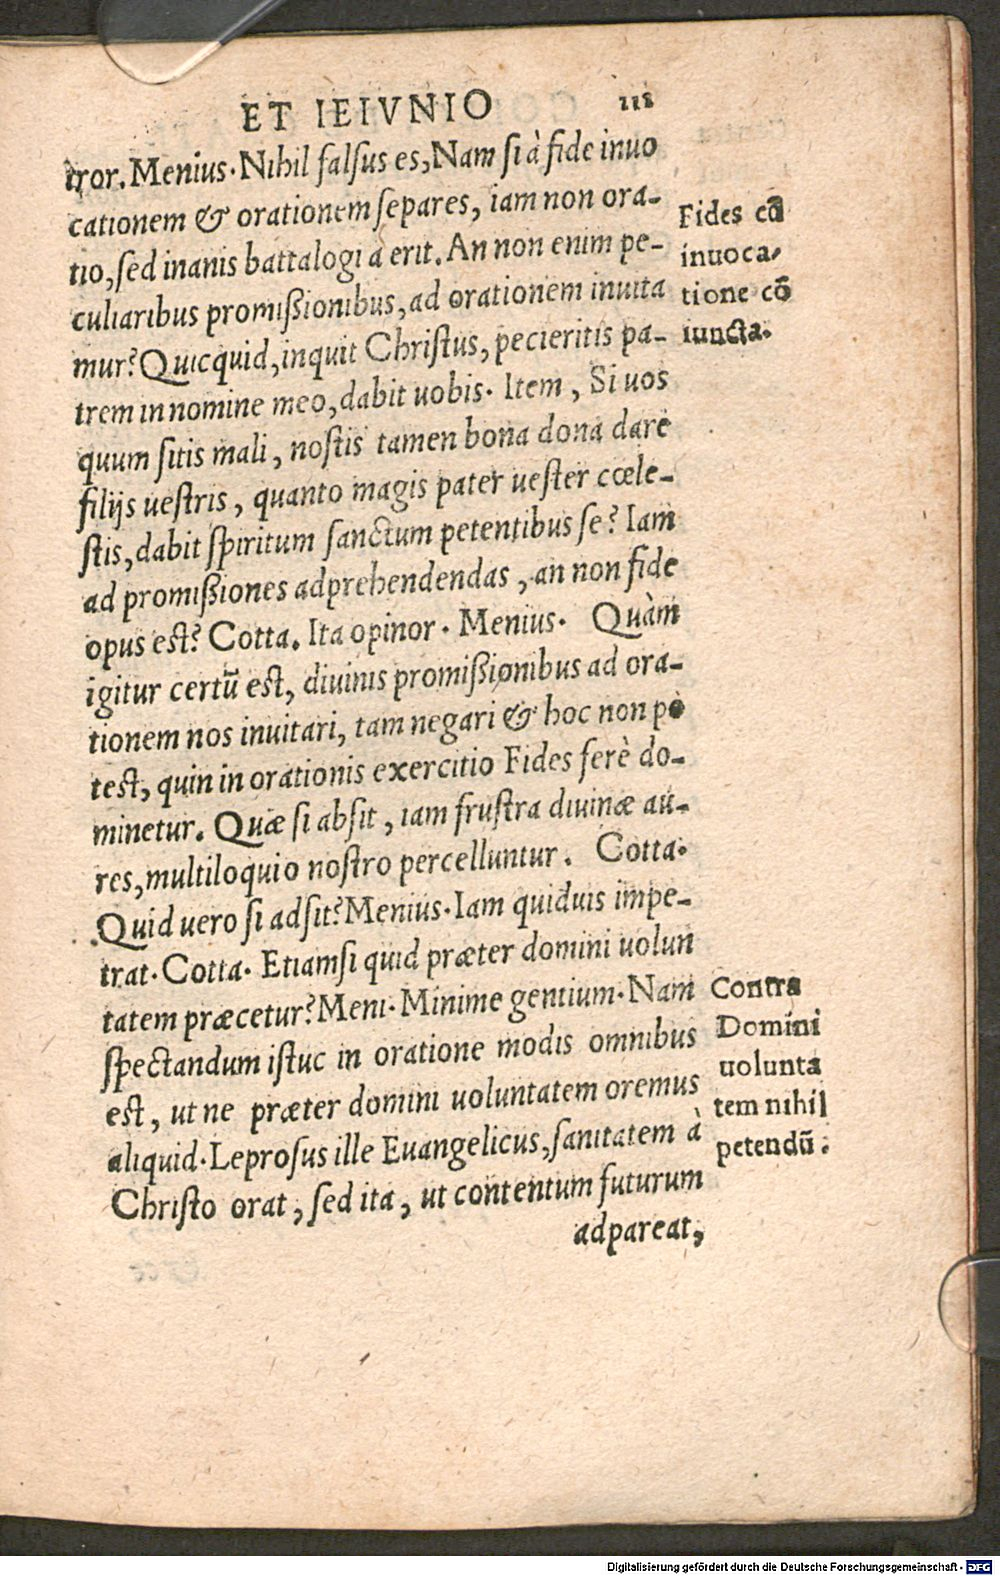 ET IEIVNIO 111
tror. Menius. Nihil falsus es, Nam si à fide inuo
cationem & orationem separes, iam non ora-
tio, sed inanis battalogia erit. An non enim pe-
culiaribus promißionibus, ad orationem inuita
mur? Quicquid, inquit Christus, pecieritis pa-
trem in nomine meo, dabit uobis. Item, Si uos
quum sitis mali, nostis tamen bona dona dare
filijs uestris, quanto magis pater uester cœle-
stis, dabit spiritum sanctum petentibus se? Iam
ad promißiones adprehendendas, an non fide
opus est? Cotta. Ita opinor. Menius. Quàm
igitur certũ est, diuinis promißionibus ad ora-
tionem nos inuitari, tam negari & hoc non po
test, quin in orationis exercitio Fides ferè do-
minetur. Quæ si absit, iam frustra diuinæ au-
res, multiloquio nostro percelluntur. Cotta.
Quid uero si adsit? Menius. Iam quiduis impe-
trat. Cotta. Etiamsi quid præter domini uolun
tatem præcetur? Meni. Minime gentium. Nam
spectandum istuc in oratione modis omnibus
est, ut ne præter domini uoluntatem oremus
aliquid. Leprosus ille Euangelicus, sanitatem à
Christo orat, sed ita, ut contentum futurum
adpareat,
Fides cũ
inuoca-
tione cõ
iuncta.
Contra
Domini
uolunta
tem nihil
petendũ.
Digitalisierung gefördert durch die Deutsche Forschungsgemeinschaft - DFG